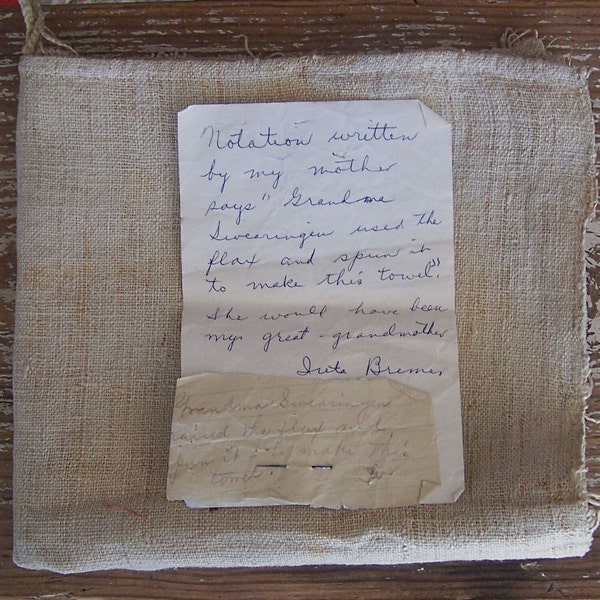 Notation written
by my mother
says "Grandma
Swearingen used the
flax and spun it
to make this towel."
She would have been
my great-grandmother
Ireta Bremer
Grandma Swearingen
the flax and
spun it to make this
towel.